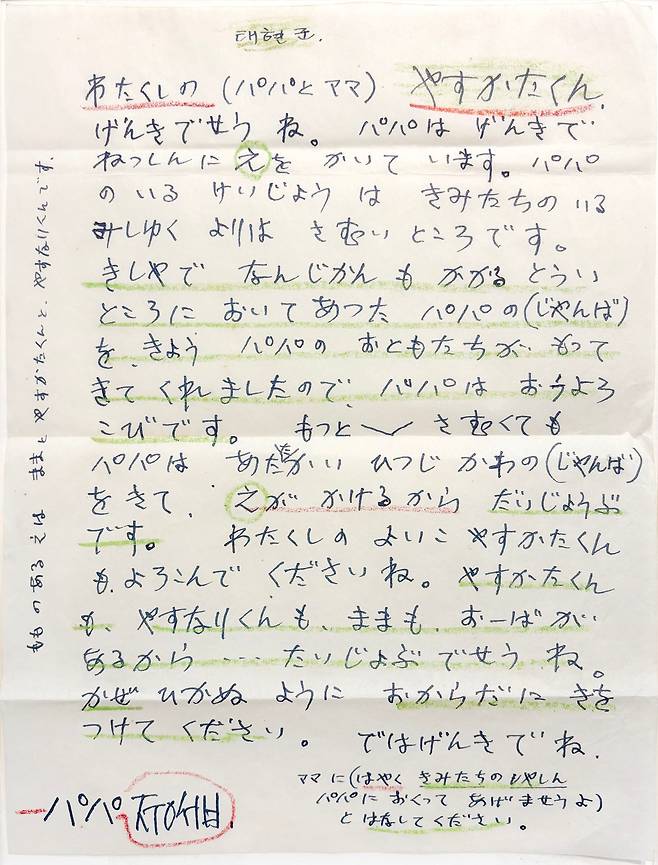 태현군.
わたくしの (パパとママ) やすかたくん.
げんきでせう ね。 パパは げんきで
ねっしんに えを かいて います。 パパ
の いる けいじよう は きみたちの いる
みしゆく よりは さむい ところです。
きしやで なんじかん も かかる とうい
ところに おいてあつた パパの(じやんば)
を、きよう パパの おともだちが、もって
きて くれましたので、パパは おうよろ
こびです。 もっと〱 さむくても
パパは あたたかい ひつじ かわの(じゃんば)
をきて、 えが かけるから だいじょうぶ
です。 わたくしの よいこ やすかたくん
も、よろこんで くださいね。 やすかたくん
も、やすなりくんも、ままも、おーばが
あるから ‥‥ たいじょぶ でせう ね。
かぜ ひかぬ ように おからだに きを
つけて ください。 ではげんきで ね.
ママに(はやく きみたちの しやしん
パパに おくって あげませうよ)
と はなしてください。
パパ ㅈㅜㅇㅅㅓㅂ.
もものある えは ままと やすかたくんと、やすなりくんです.